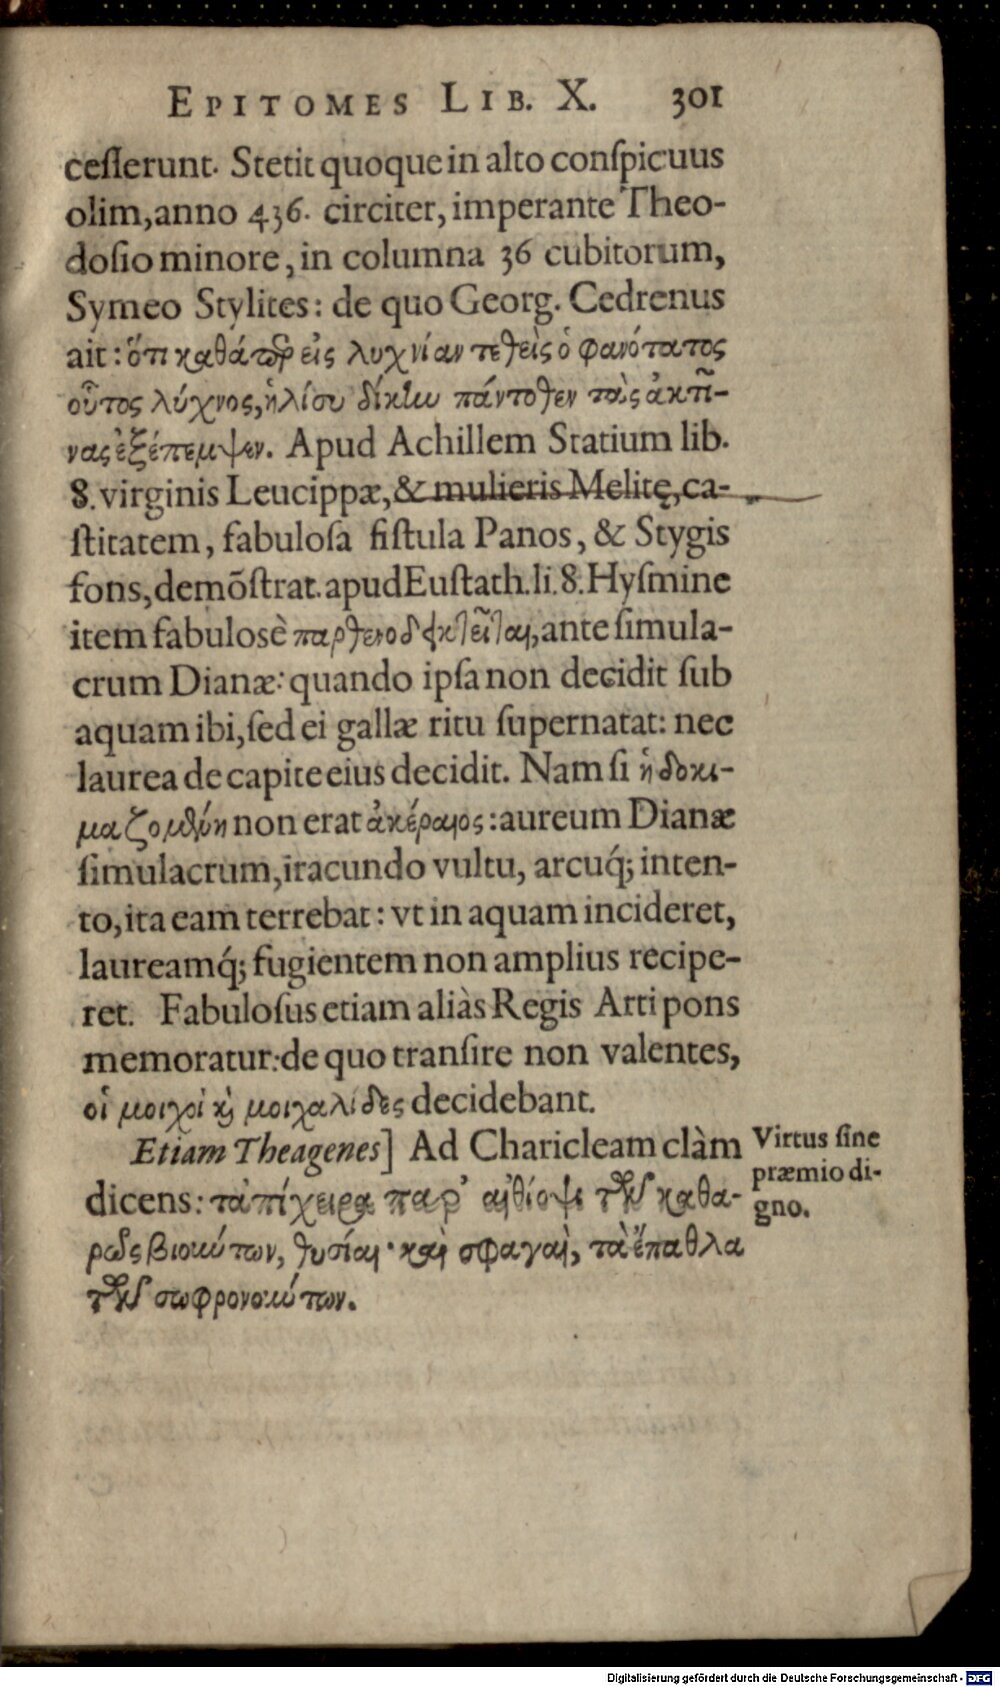 EPITOMES LIB. X. 301
ceſſerunt. Stetit quoque in alto conſpicuus
olim, anno 436. circiter, imperante Theo-
doſio minore, in columna 36 cubitorum,
Symeo Stylites: de quo Georg. Cedrenus
ait: ὅτι καθάπερ εἰς λυχνίαν τεθεὶς ὁ φανότατος
οὗτος λύχνος, ἡλίου δίκην πάντοθεν τὰς ἀκτῖ-
νας ἐξέπεμψεν. Apud Achillem Statium lib.
8. virginis Leucippæ, & mulieris Melitę, ca-
ſtitatem, fabuloſa fiſtula Panos, & Stygis
fons, demõſtrat. apud Euſtath. li. 8. Hyſmine
item fabulosè ante ſimula-
crum Dianæ: quando ipſa non decidit ſub
aquam ibi, ſed ei gallæ ritu ſupernatat: nec
laurea de capite eius decidit. Nam ſi ἡ δοκι-
μαζομένη non erat ἀκέραιος: aureum Dianæ
ſimulacrum, iracundo vultu, arcuq́; inten-
to, ita eam terrebat: vt in aquam incideret,
laureamq́; fugientem non amplius recipe-
ret. Fabuloſus etiam aliàs Regis Arti pons
memoratur: de quo tranſire non valentes,
οἱ μοιχοὶ καὶ μοιχαλίδες decidebant.
Etiam Theagenes] Ad Charicleam clàm
dicens: τἀπίχειρα παρ' αἰθίοψι τῶν καθα-
ρῶς βιούντων, θυσίαι καὶ σφαγαὶ, τὰ ἔπαθλα
τῶν σωφρονούντων.
Virtus ſine
præmio di-
gno.
Digitalisierung gefördert durch die Deutsche Forschungsgemeinschaft - DFG